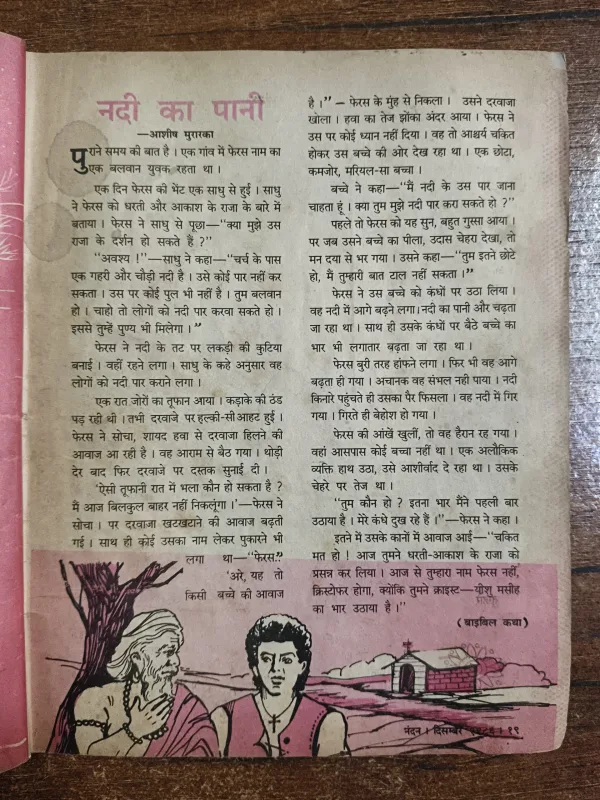 नदी का पानी
—आशीष मुरारका
पुराने समय की बात है । एक गांव में फेरस नाम का
एक बलवान युवक रहता था ।
एक दिन फेरस की भेंट एक साधु से हुई । साधु
ने फेरस को धरती और आकाश के राजा के बारे में
बताया । फेरस ने साधु से पूछा—“क्या मुझे उस
राजा के दर्शन हो सकते हैं ?”
“अवश्य !”—साधु ने कहा—“चर्च के पास
एक गहरी और चौड़ी नदी है । उसे कोई पार नहीं कर
सकता । उस पर कोई पुल भी नहीं है । तुम बलवान
हो । चाहो तो लोगों को नदी पार करवा सकते हो ।
इससे तुम्हें पुण्य भी मिलेगा ।”
फेरस ने नदी के तट पर लकड़ी की कुटिया
बनाई । वहीं रहने लगा । साधु के कहे अनुसार वह
लोगों को नदी पार कराने लगा ।
एक रात जोरों का तूफान आया । कड़ाके की ठंड
पड़ रही थी । तभी दरवाजे पर हल्की-सी आहट हुई ।
फेरस ने सोचा, शायद हवा से दरवाजा हिलने की
आवाज आ रही है । वह आराम से बैठ गया । थोड़ी
देर बाद फिर दरवाजे पर दस्तक सुनाई दी ।
‘ऐसी तूफानी रात में भला कौन हो सकता है ?
मैं आज बिलकुल बाहर नहीं निकलूंगा ।’—फेरस ने
सोचा । पर दरवाजा खटखटाने की आवाज बढ़ती
गई । साथ ही कोई उसका नाम लेकर पुकारने भी
लगा था—“फेरस.”
‘अरे, यह तो
किसी बच्चे की आवाज
है ।” – फेरस के मुंह से निकला । उसने दरवाजा
खोला । हवा का तेज झोंका अंदर आया । फेरस ने
उस पर कोई ध्यान नहीं दिया । वह तो आश्चर्य चकित
होकर उस बच्चे की ओर देख रहा था । एक छोटा,
कमजोर, मरियल-सा बच्चा ।
बच्चे ने कहा—“मैं नदी के उस पार जाना
चाहता हूं । क्या तुम मुझे नदी पार करा सकते हो ?”
पहले तो फेरस को यह सुन, बहुत गुस्सा आया ।
पर जब उसने बच्चे का पीला, उदास चेहरा देखा, तो
मन दया से भर गया । उसने कहा—“तुम इतने छोटे
हो, मैं तुम्हारी बात टाल नहीं सकता ।”
फेरस ने उस बच्चे को कंधों पर उठा लिया ।
वह नदी में आगे बढ़ने लगा। नदी का पानी और चढ़ता
जा रहा था । साथ ही उसके कंधों पर बैठे बच्चे का
भार भी लगातार बढ़ता जा रहा था ।
फेरस बुरी तरह हांफने लगा । फिर भी वह आगे
बढ़ता ही गया । अचानक वह संभल नही पाया । नदी
किनारे पहुंचते ही उसका पैर फिसला । वह नदी में गिर
गया । गिरते ही बेहोश हो गया ।
फेरस की आंखें खुलीं, तो वह हैरान रह गया ।
वहां आसपास कोई बच्चा नहीं था । एक अलौकिक
व्यक्ति हाथ उठा, उसे आशीर्वाद दे रहा था । उसके
चेहरे पर तेज था ।
“तुम कौन हो ? इतना भार मैंने पहली बार
उठाया है । मेरे कंधे दुख रहे हैं ।”—फेरस ने कहा ।
इतने में उसके कानों में आवाज आई—“चकित
मत हो ! आज तुमने धरती-आकाश के राजा को
प्रसन्न कर लिया । आज से तुम्हारा नाम फेरस नहीं,
क्रिस्टोफर होगा, क्योंकि तुमने क्राइस्ट—यीशु मसीह
का भार उठाया है ।”
(बाइबिल कथा)
नंदन । दिसम्बर । १९